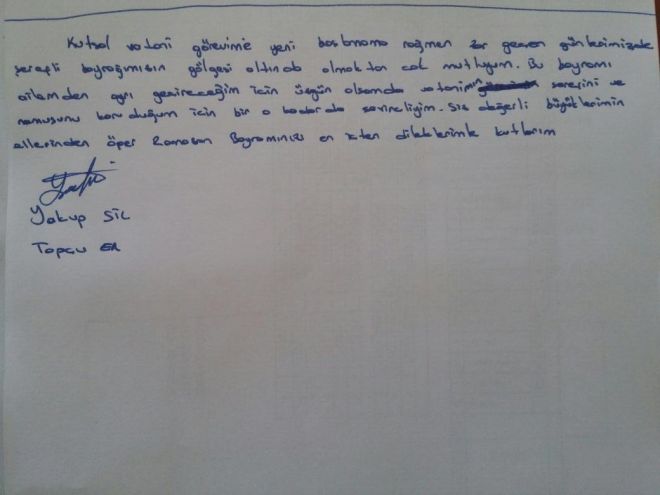 Kutsal vatani görevime yeni başlamama rağmen zor geçen günlerimizde
şerefli bayrağımızın gölgesi altında olmaktan çok mutluyum. Bu bayramı
ailemden ayrı geçireceğim için üzgün olsamda vatanımın şerefini ve
namusunu koruduğum için bir o kadarda sevinçliyim. Siz değerli büyüklerimin
ellerinden öper Ramazan Bayramınızı en içten dileklerimle kutlarım
Yakup SİL
Topçu ER